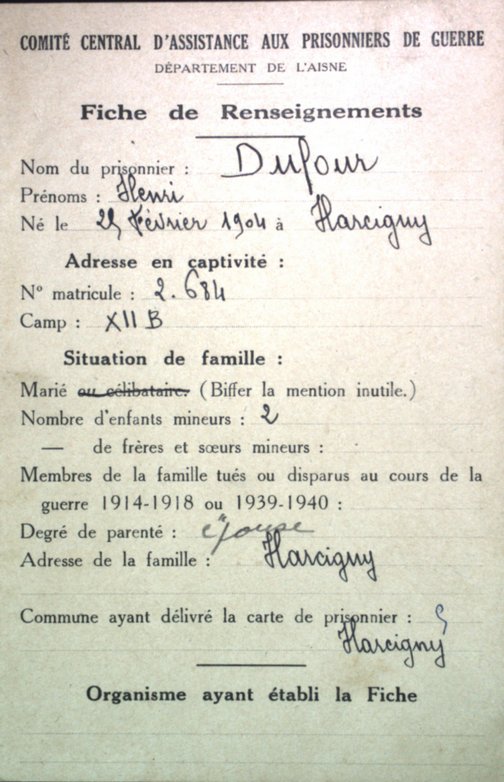 COMITÉ CENTRAL D'ASSISTANCE AUX PRISONNIERS DE GUERRE
DÉPARTEMENT DE L'AISNE
Fiche de Renseignements
Nom du prisonnier : Dufour
Prénoms : Henri
Né le 25 Février 1904 à Harcigny
Adresse en captivité :
N° matricule : 2.684
Camp : XII B
Situation de famille :
Marié ou célibataire. (Biffer la mention inutile.)
Nombre d'enfants mineurs : 2
— de frères et sœurs mineurs :
Membres de la famille tués ou disparus au cours de la
guerre 1914-1918 ou 1939-1940 :
Degré de parenté : épouse
Adresse de la famille : Harcigny
Commune ayant délivré la carte de prisonnier :
Harcigny
Organisme ayant établi la Fiche